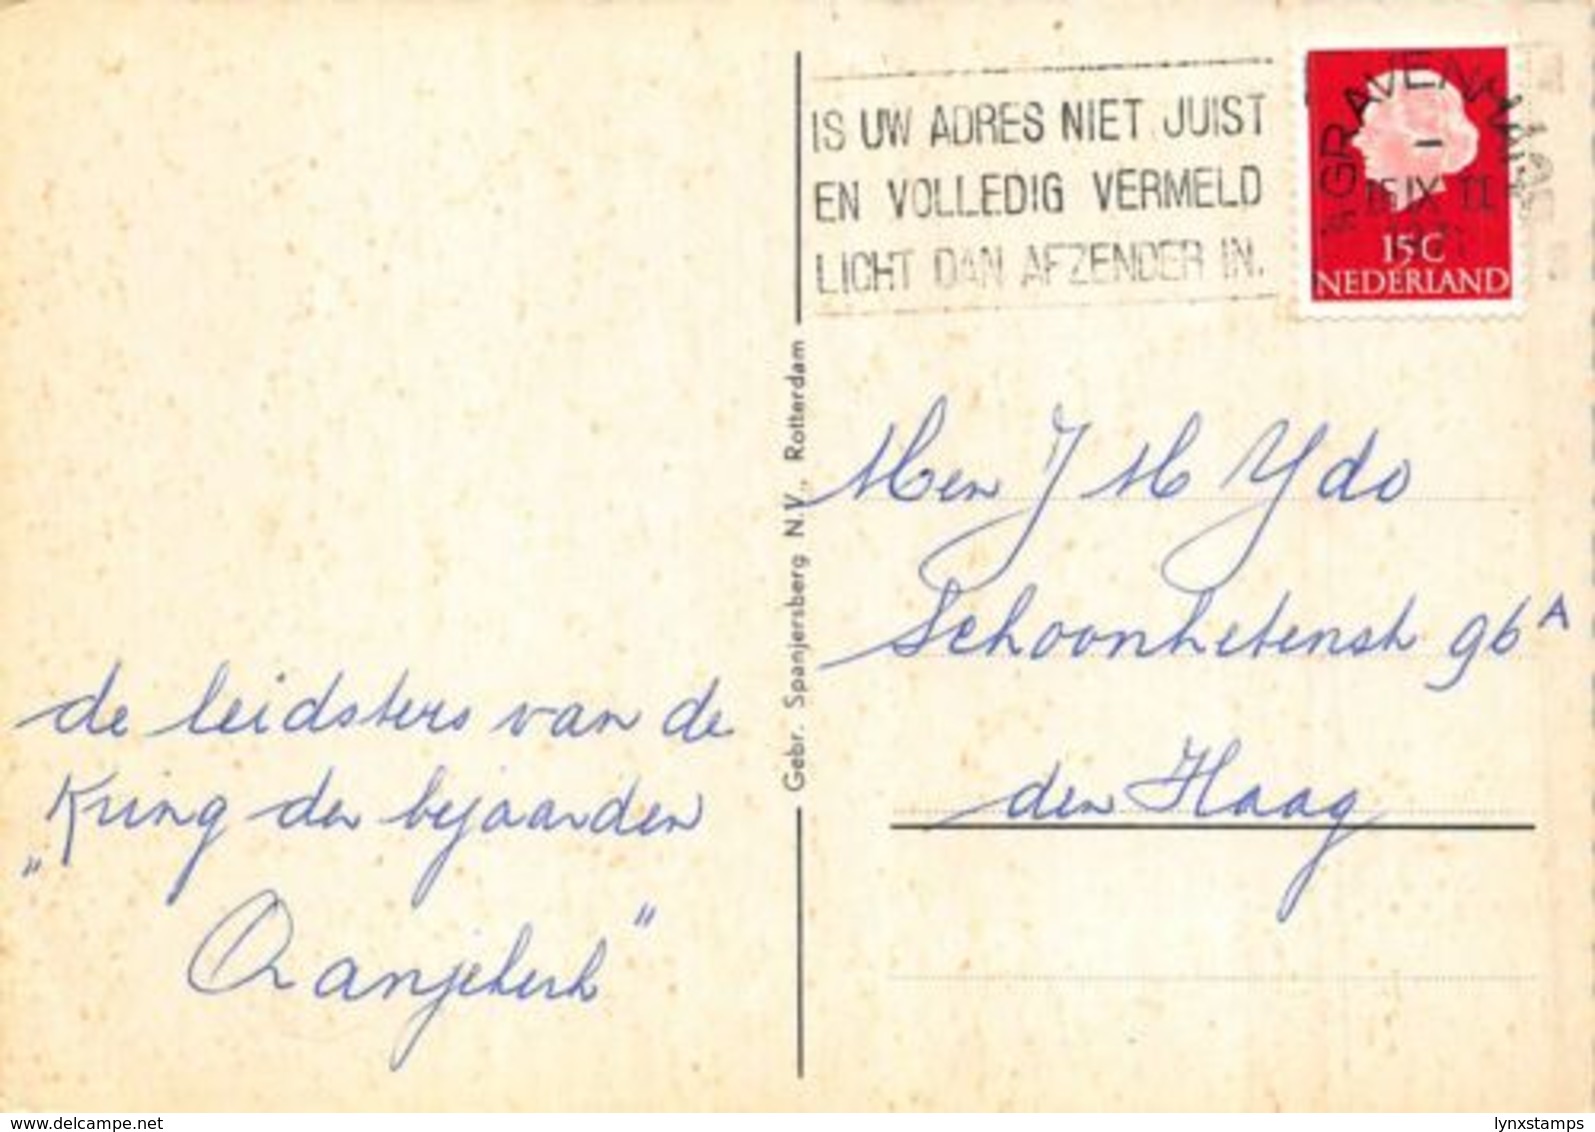 de leidsters van de
Kring der bejaarden
"Oranjekerk"
Gebr. Spanjersberg N.V., Rotterdam
IS UW ADRES NIET JUIST
EN VOLLEDIG VERMELD
LICHT DAN AFZENDER IN.
'S GRAVENHAGE
15 IX
15 C
NEDERLAND
J M Ydo
96 A
den Haag
www.delcampe.net
lynxstamps